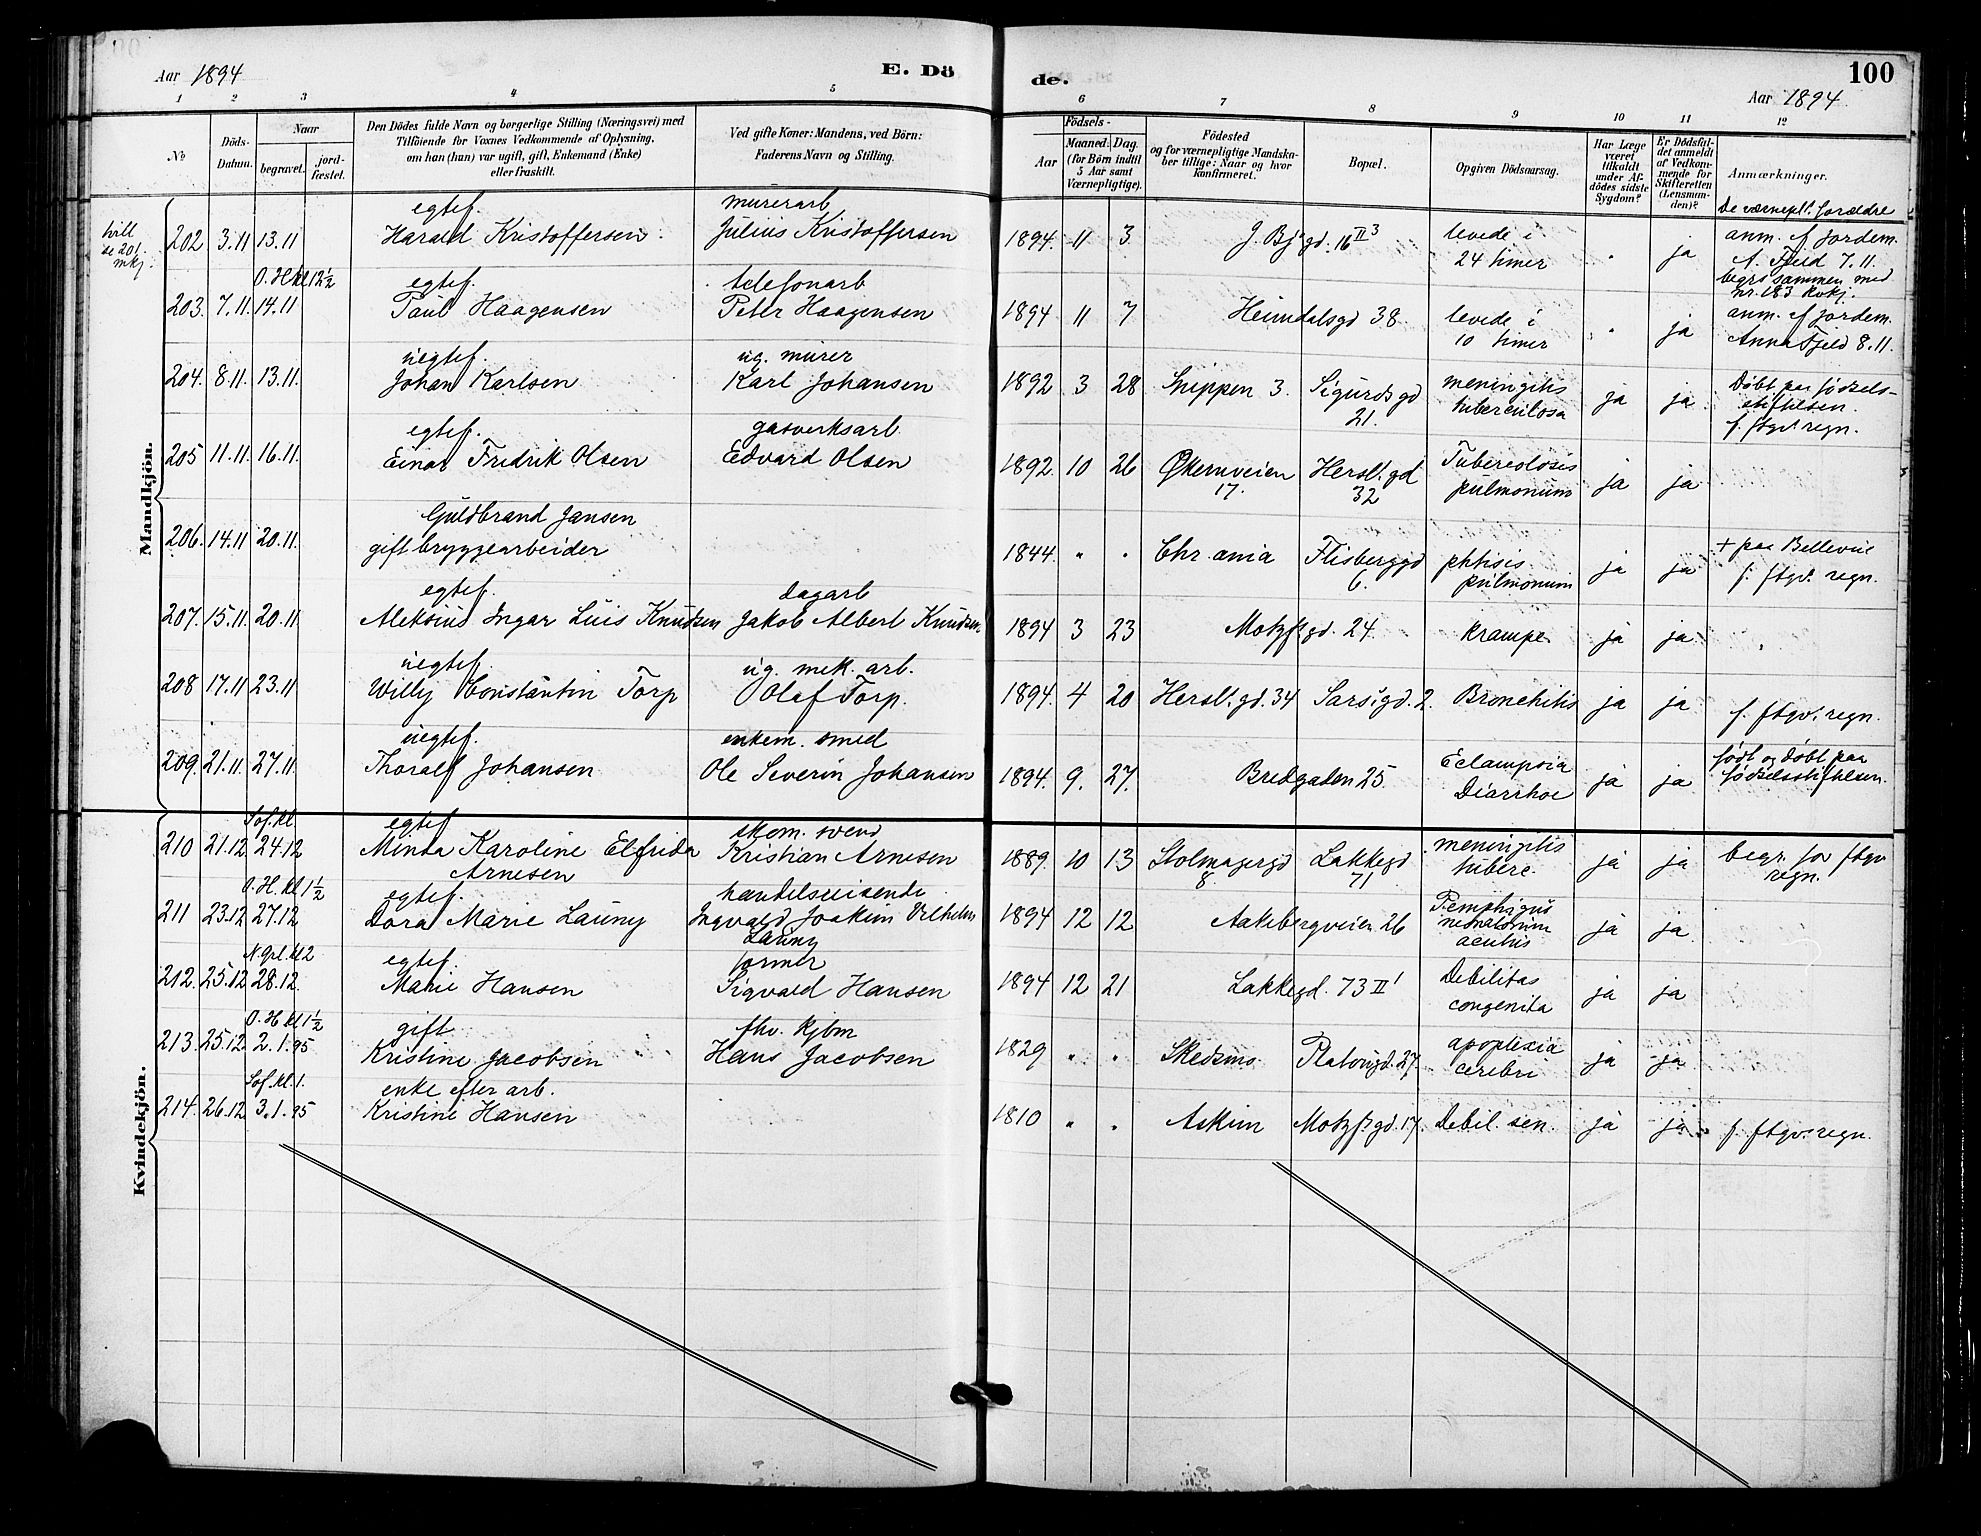 Aar 1894
E. Dö
de.
100
Aar 1894.
1 2 3 4 5 6 7 8 9 10 11 12
No
Döds-Datum.
Naar
begravet.
jord-fæstet.
Den Dödes fulde Navn og borgerlige Stilling (Næringsvei) med
Tilföiende for Voxnes Vedkommende af Oplysning.
om han (hun) var ugift, gift, Enkemand (Enke)
eller fraskilt.
Ved gifte Koner: Mandens, ved Børn:
Faderens Navn og Stilling.
Födsels-
Aar
Maaned. Dag.
(for Börn indtil
5 Aar samt
Værnepligtige).
Födested
og for værnepligtige Mandska-
ber tillige: Naar og hvor
konfirmeret.
Bopæl.
Opgiven Dödsaarsag.
Har Læge
været
tilkaldt
under Af-
dödes sidste
Sygdom?
Er Dödsfal-
det anmeldt
af Vedkom-
mende for
Skifteretten
(Lensman-
den)?
Anmærkninger.
Mandkjön.
egtef. murerarb De værnepl. forældre
202 3.11 13.11 Harald Kristoffersen Julius Kristoffersen 1894. 11 3 J. Bj. gd. 16 II 3 levede i 24 timer " ja anm. af jordem. A. Fjeld 7.11. begr. sammen med nr. 183
O. H kl 12½ egtef. telefonarb
203. 7.11. 14.11 Paul Haagensen Peter Haagensen 1894 11 7 Heimdalsgd 38 levede i 10 timer " ja anm. af jordem. Anna Fjeld 8.11.
uegtef. ug. murer
204. 8.11. 13.11. Johan Karlsen Karl Johansen 1892 3 28 Snippen 3. Sigurdsgd 21. meningitis tuberculosa ja ja Döbt paa fødselsstiftelsen. f. ftgv. regn.
egtef. gasverksarb
205 11.11. 16.11. Einar Fredrik Olsen Edvard Olsen 1892. 10 26 Økernveien 17. Hersl. gd 32 Tuberculosis pulmonum ja ja
Guldbrand Jansen
206. 14.11 20.11. gift bryggearbeider 1844. " " Chr.ania Flisberggd 6. phtisis pulmonum ja ja + paa Bellevue f. ftgv. regn.
egtef. dagarb
207. 15.11. 20.11 Aleksius Ingar Luis Knudsen Jakob Albert Knudsen. 1894 3 23 Motzf. gd. 24. Krampe ja ja "
uegtef. ug. mek. arb.
208 17.11 23.11 Willy Constantin Torp Olaf Torp. 1894. 4 20 Hersl. gd. 34 Sars' gd. 2. Bronchitis ja ja f. ftgv. regn.
uegtef. enkem. smed
209. 21.11. 27.11. Thoralf Johansen Ole Severin Johansen 1894. 9. 27. Bredgaden 25. Eclampsia Diarrhoe ja ja født og døbt paa fødselsstiftelsen
Kvindekjön.
Sof. kl egtef skom. svend
210 21.12. 24.12 Minda Karoline Elfrida Arnesen Kristian Arnesen 1889. 10 13 Stolmagergd 8 Lakkegd 71 meningitis tuberc. ja ja begr. for ftgv regn.
O. H. kl 1½ egtef. handelsreisende
211 23.12 27.12 Dora Marie Launy Ingvald Joakim Vilhelm Launy 1894 12 12 Aakebergveien 26 Pemphigus neonatorum acutus ja ja
N. grl. kl 2 egtef. former
212. 25.12 28.12. Marie Hansen Sigvald Hansen 1894 12 21 Lakkegd. 73 II' Debilitas congenita ja ja
O. H kl 1½ gift fhv. kjbm
213. 25.12. 2.1.95 Kristine Jacobsen Hans Jacobsen 1829 " " Skedsmo Platousgd. 27 apoplexia cerebri ja ja
Sof. kl 1. enke efter arb.
214. 26.12 3.1.95 Kristine Hansen 1810 " " Askim Motzf. gd. 17. Debil. sen. ja ja f. ftgv. regn.